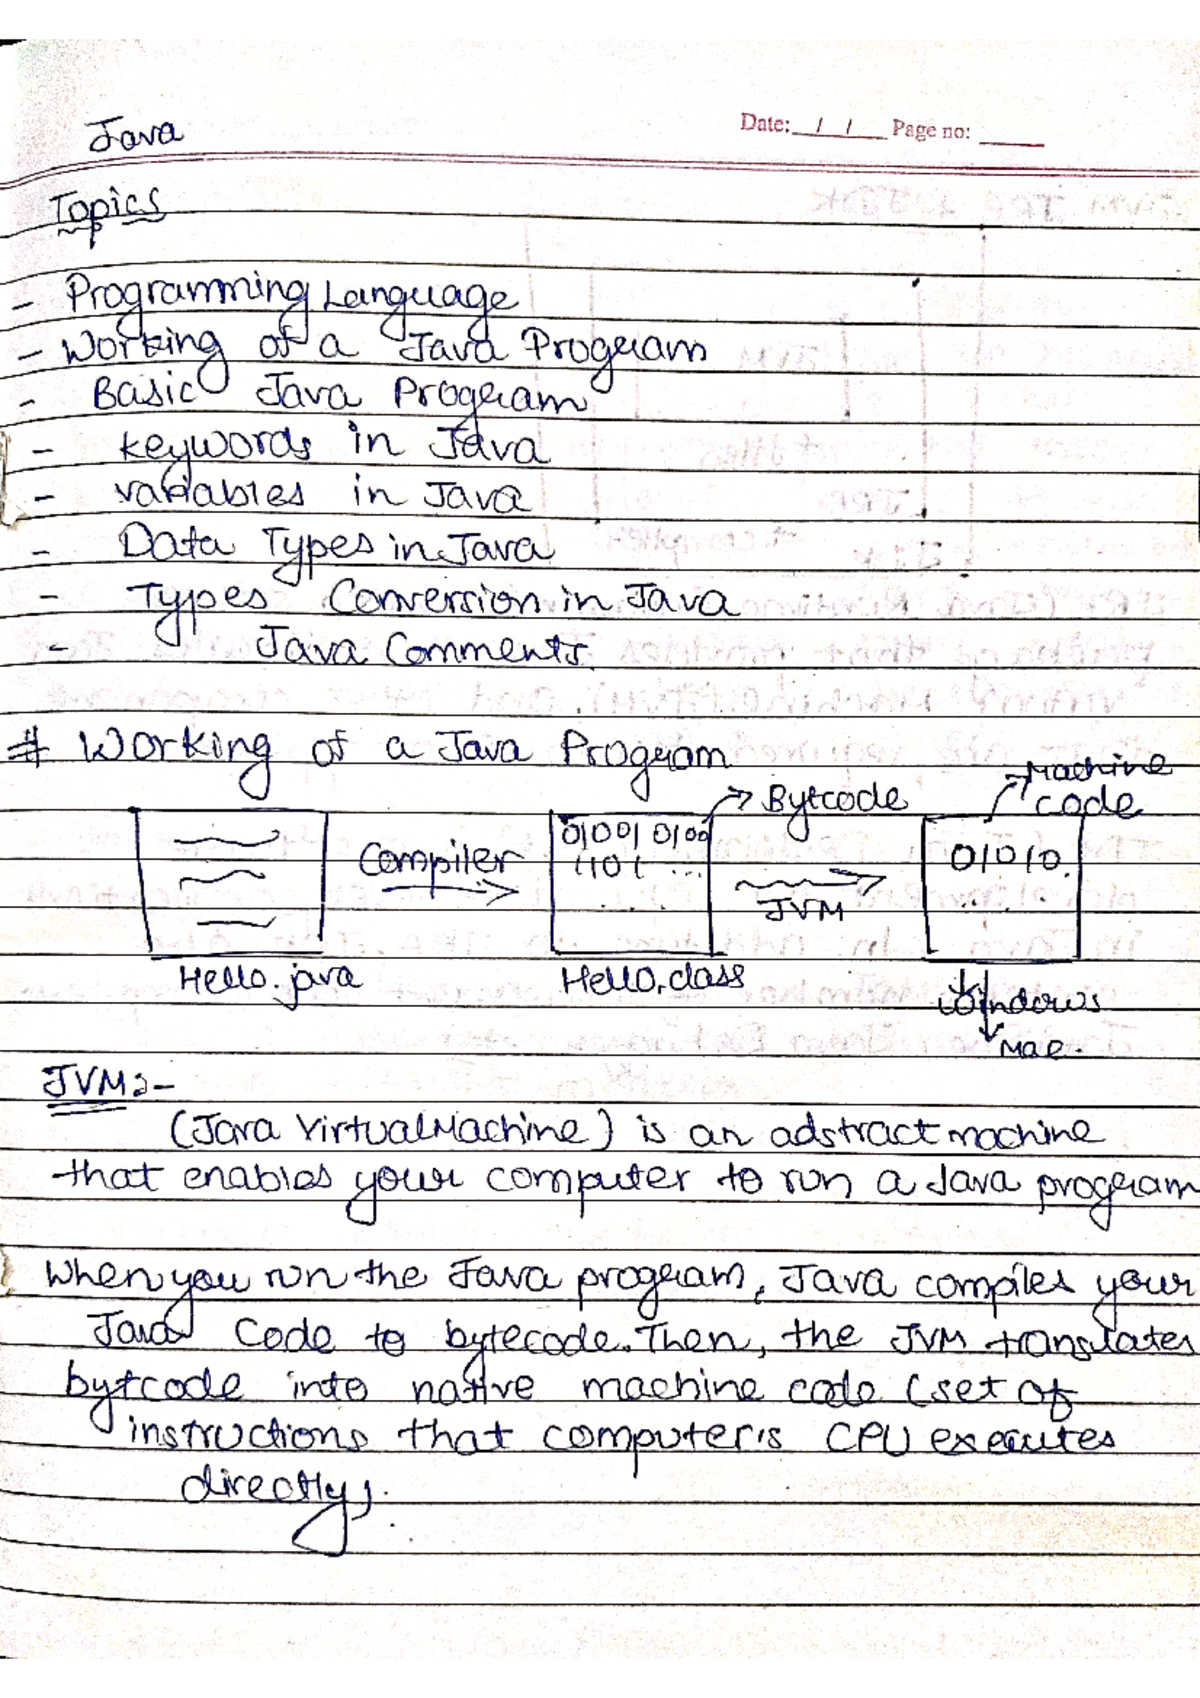 Java
Date: / / Page no:
Topics
- Programming Language
- Working of a Java Program
- Basic Java Program
- Keywords in Java
- variables in Java
- Data Types in Java
- Types Conversion in Java
- Java Comments.
# Working of a Java Program
Machine
code
Bytcode
01001 0100
1101 ...
Compiler
JVM
01010.
Hello.java
Hello.class
Windows
Mac.
JVM :-
(Java Virtual Machine) is an adstract machine
that enables your computer to run a Java program
When you run the Java program, Java compiles your
Java Code to bytecode. Then, the JVM translates
bytcode into native machine code (set of
instructions that computer's CPU executes
directly).